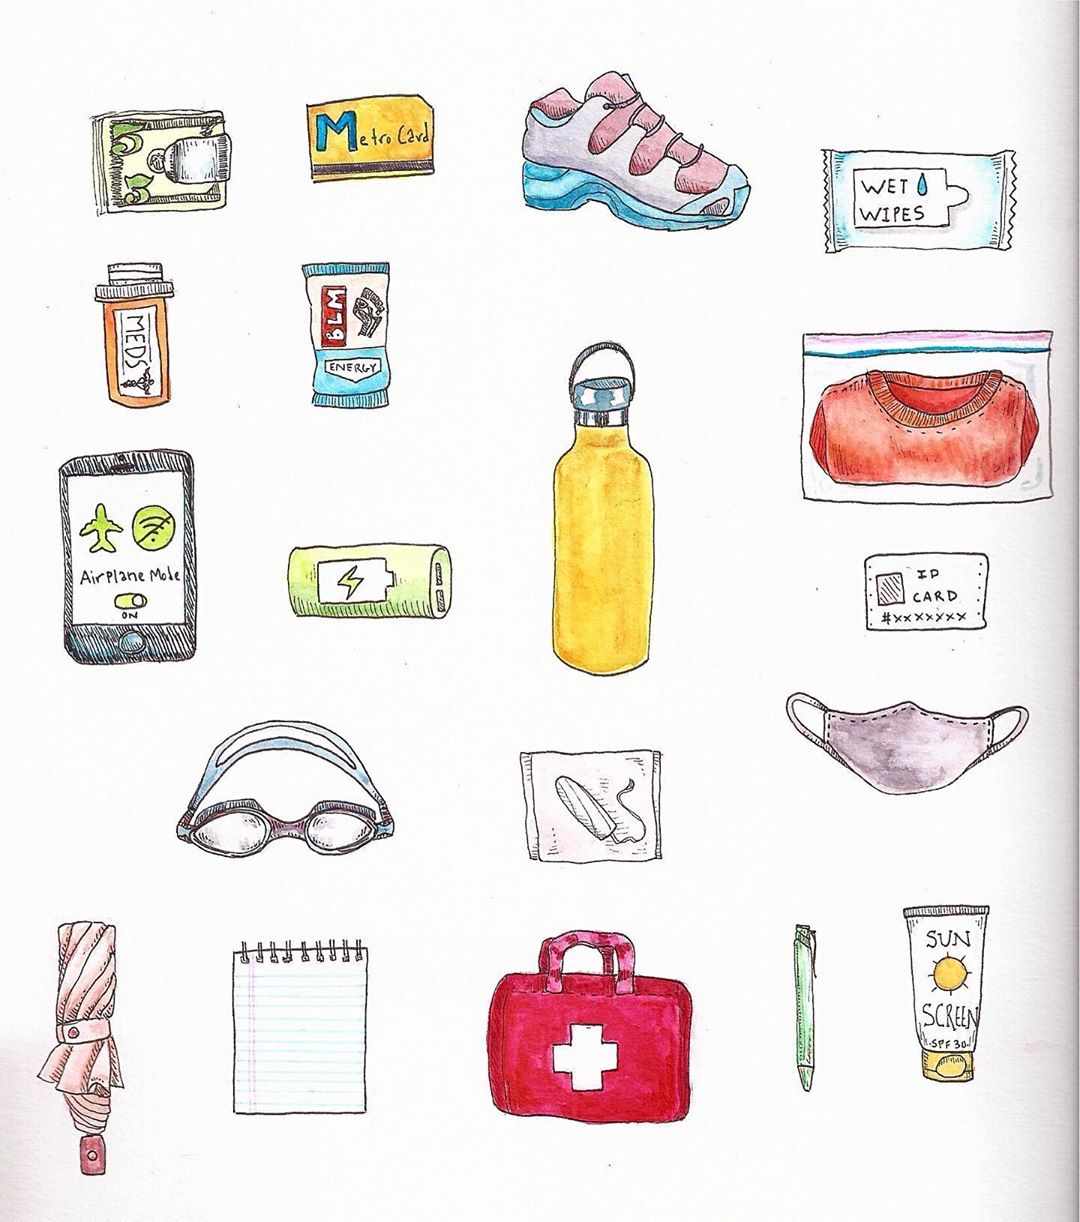 Metro Card
WET
WIPES
MEDS
BLM
ENERGY
AirPlane Mode
ON
ID
CARD
#xxxxxxxx
SUN
SCREEN
SPF 30